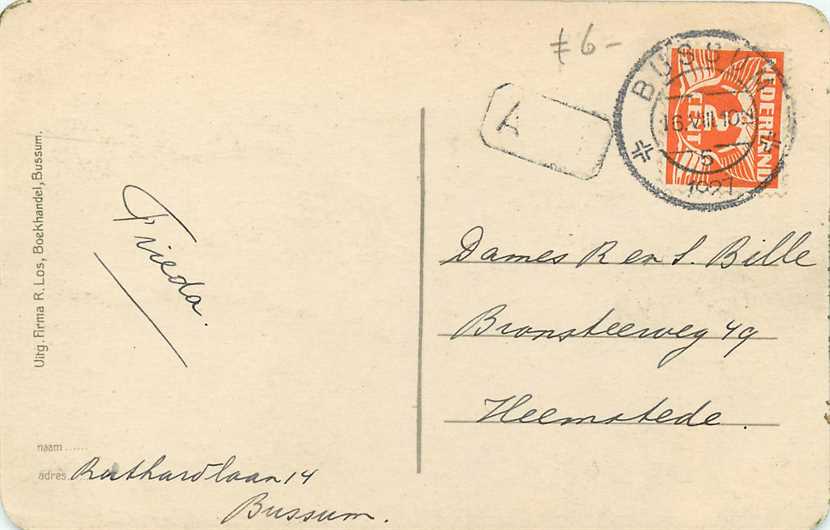 ≠ 6 -
BUSSUM
16.VIII.10-N
5
1927
NEDERLAND
2
CENT
A
Uitg. Firma R. Los, Boekhandel, Bussum.
Frieda.
Dames R en S. Bille
Bronsteeweg 49
Heemstede.
naam ......
adres Ruthardlaan 14
Bussum.